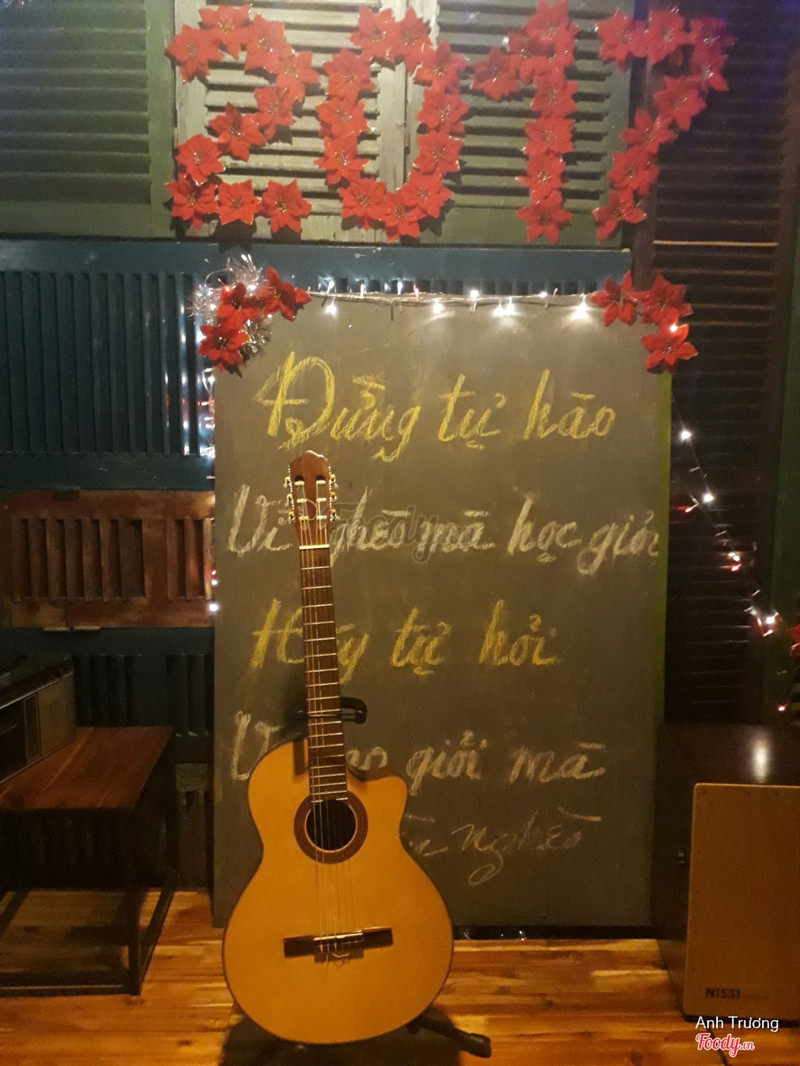 2017
Đừng tự hào
Vì nghèo mà học giỏi
Hãy tự hỏi
giỏi mà
nghèo
NISSI
Anh Trương
Foody.vn
Foody